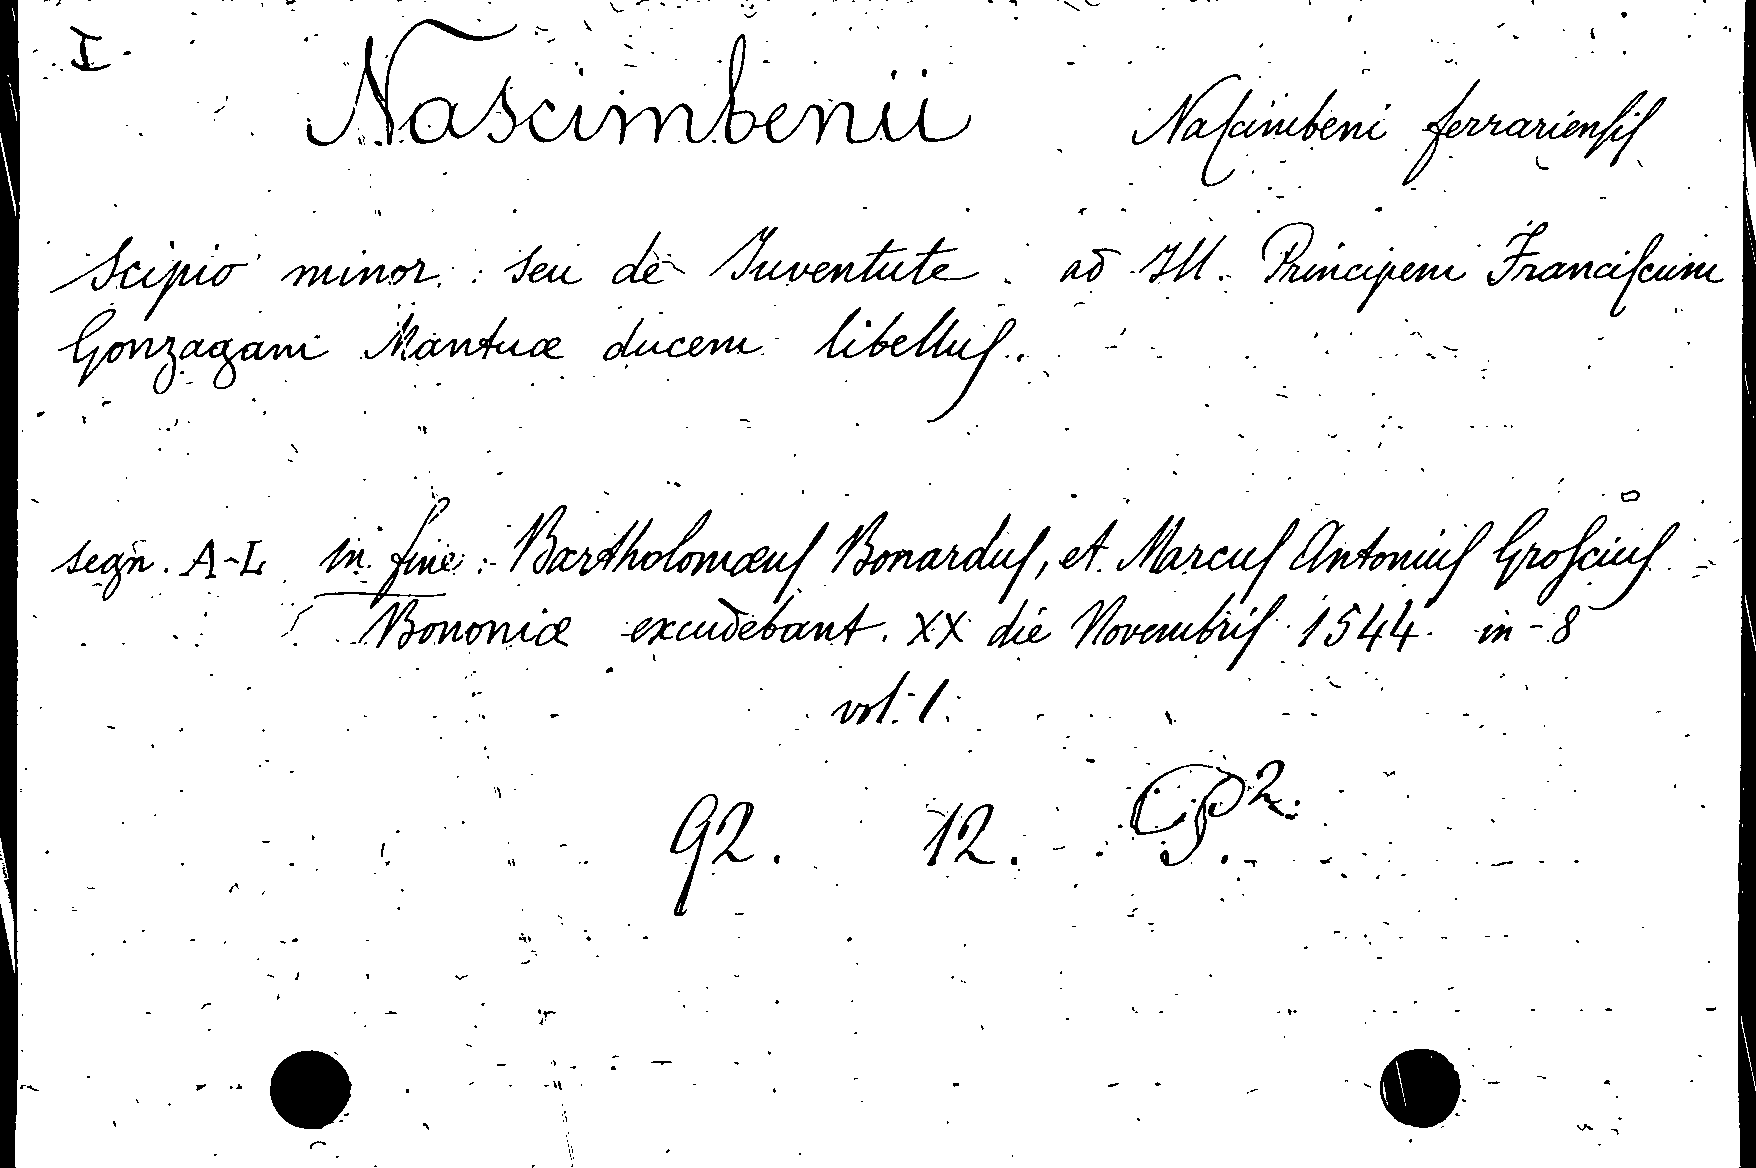 I
Nascimbenii Naſcimbeni ferrarienſiſ
Scipio minor: seu de Juventute ad Ill. Principem Franciſcum
Gonzagam Mantuæ ducem libelluſ.
segn. A-L in fine: Bartholomæuſ Bonarduſ, et Marcuſ Antoniuſ Groſciuſ
Bononiæ excudebant. XX die Novembriſ 1544 in-8
vol. 1.
92. 12. P².